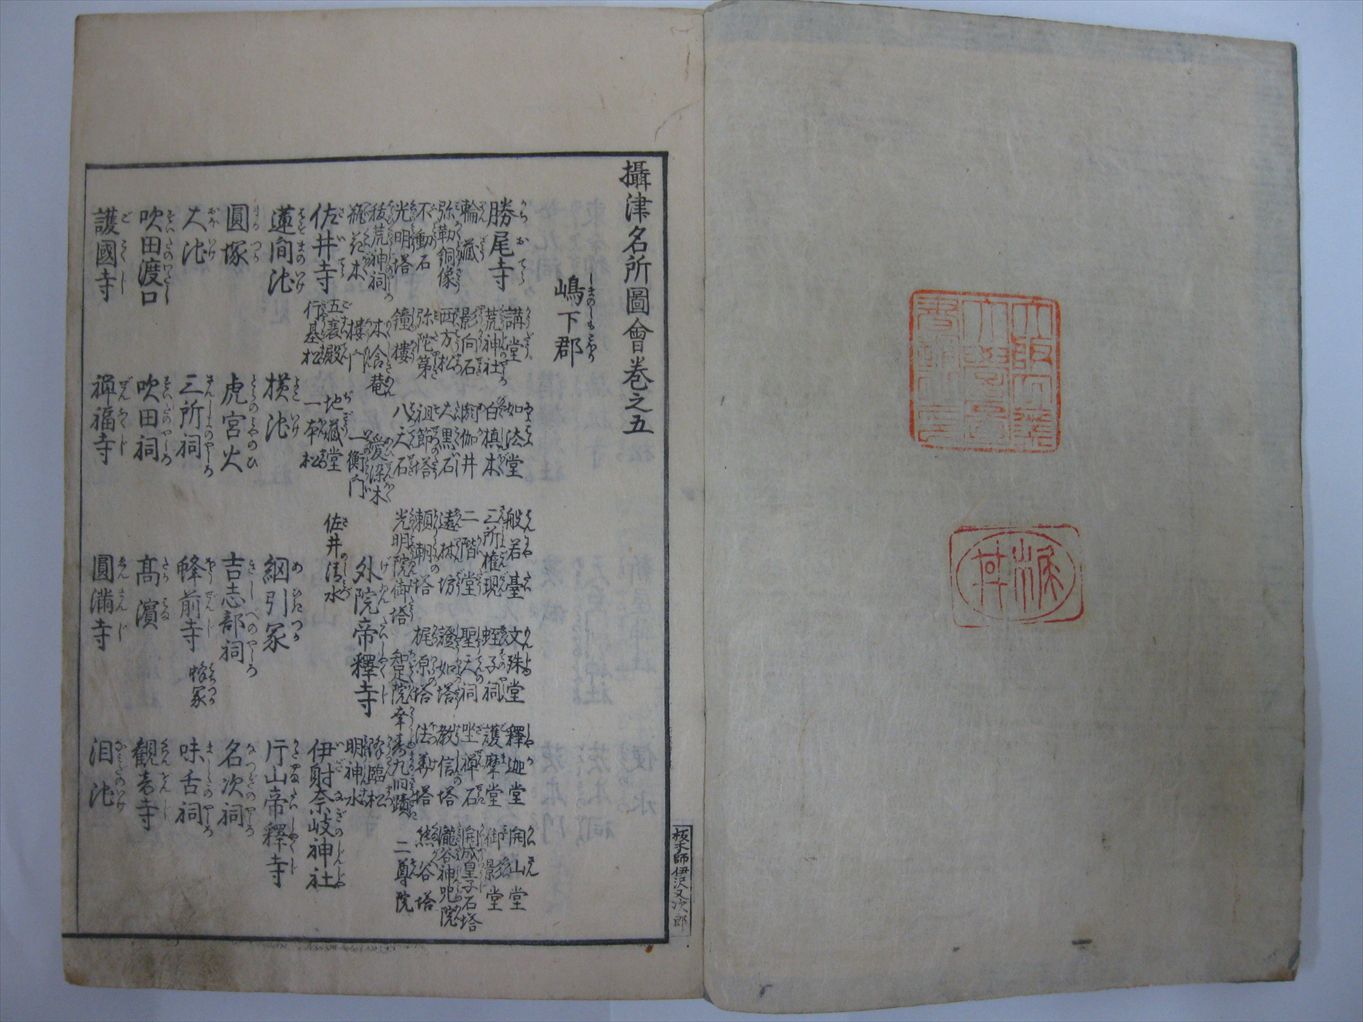 攝津名所圖會卷之五
嶋下郡
勝尾寺 講堂 如法堂 般若臺 文殊堂 釋迦堂 開山堂
荒神社 白槙木 三所権現 蛭子祠 護摩堂 御影堂
輪藏 影向石 閼伽井 二階堂 聖天祠 坐禅石 開成皇子石塔
弥勒銅像 西方松 大黒石 遠林坊 證如塔 教信塔 瀧谷神呪院
不動石 弥陀第 祖節塔 頼朝塔 梶原塔 法華塔 熊谷塔
光明塔 鐘樓 八天石 光明院御塔 知足院 九旧蹟 二尊院
荒神祠 木食菴 愛染木
樓門 一衡門 外院帝釋寺 明神水 松
佐井寺 五襄殿 地藏堂 佐井清水 伊射奈岐神社
行基松 一本松
蓮間池 横池 網引冢 片山帝釋寺
圓塚 虎宮火 吉志部祠 名次祠
大池 三所祠 蜂前寺 蛤冢 味舌祠
吹田渡口 吹田祠 髙濵 観音寺
護國寺 禅福寺 圓満寺 泪池
板木師伊沢又次郎